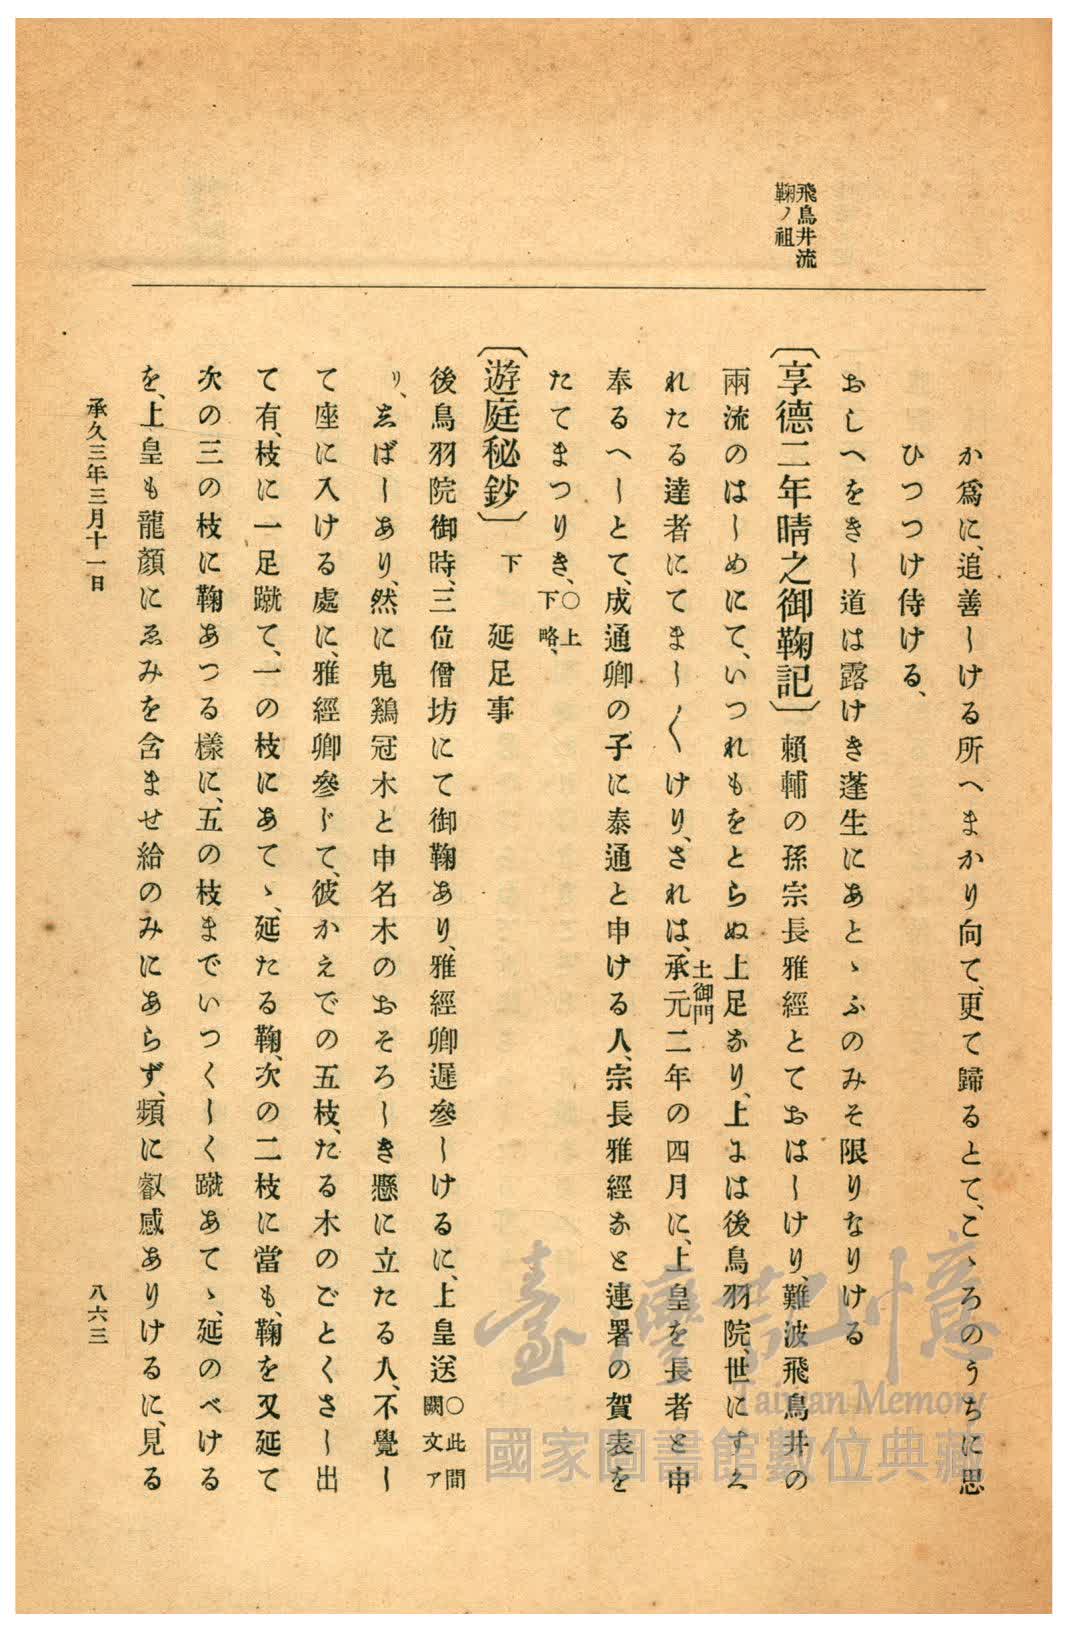 飛鳥井流
鞠ノ祖
か爲に、追善しける所へまかり向て、更て歸るとて、こゝろのうちに思
ひつつけ侍ける、
おしへをきし道は露けき蓬生にあとゝふのみそ限りなりける
〔享德二年晴之御鞠記〕賴輔の孫宗長雅經とておはしけり、難波飛鳥井の
兩流のはしめにて、いつれもをとらぬ上足なり、上には後鳥羽院、世にすく
土御門
れたる達者にてまし〳〵けり、されは、承元二年の四月に、上皇を長者と申
奉るへしとて、成通卿の子に泰通と申ける人、宗長雅經なと連署の賀表を
たてまつりき、○上
下略、
〔遊庭秘鈔〕下 延足事
後鳥羽院御時、三位僧坊にて御鞠あり、雅經卿遲參しけるに、上皇、送○此間
闕文ア
リ、ゑばしあり、然に鬼鷄冠木と申名木のおそろしき懸に立たる人、不覺し
て座に入ける處に、雅經卿參じて、彼かえでの五枝、たる木のごとくさし出
て有、枝に一足蹴て、一の枝にあてゝ、延たる鞠、次の二枝に當も、鞠を又延て
次の三の枝に鞠あつる樣に、五の枝までいつくしく蹴あてゝ、延のべける
を、上皇も龍顏にゑみを含ませ給のみにあらず、頻に叡感ありけるに、見る
承久三年三月十一日
八六三
臺灣記憶
Taiwan Memory
國家圖書館數位典藏